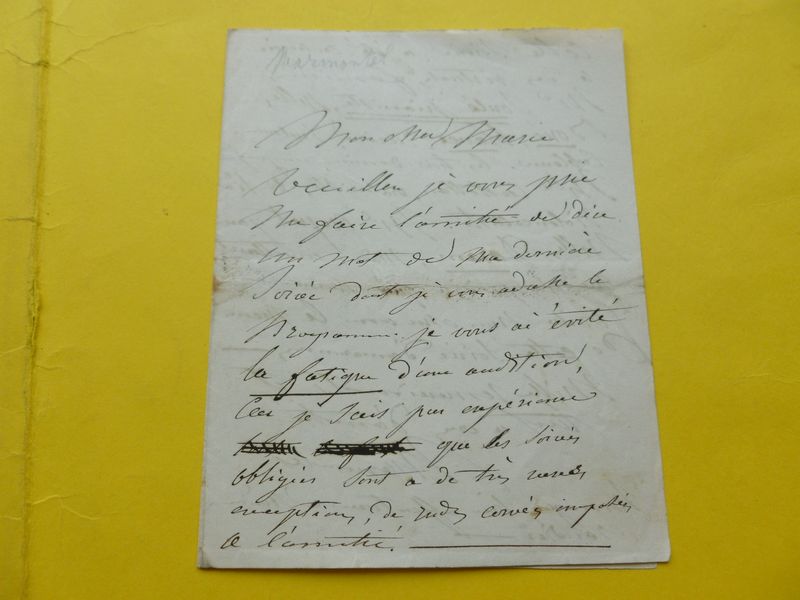 Marmontel
Mon cher Marie
Veuillez je vous prie
me faire l'amitié de dire
un mot de ma dernière
Soirée dont je vous adresse le
Programme. je vous ai évité
la fatigue d'une audition,
Car je sais par expérience
que les soirées
obligées sont a de très rares
exceptions, de rudes corvées imposées
a l'amitié.